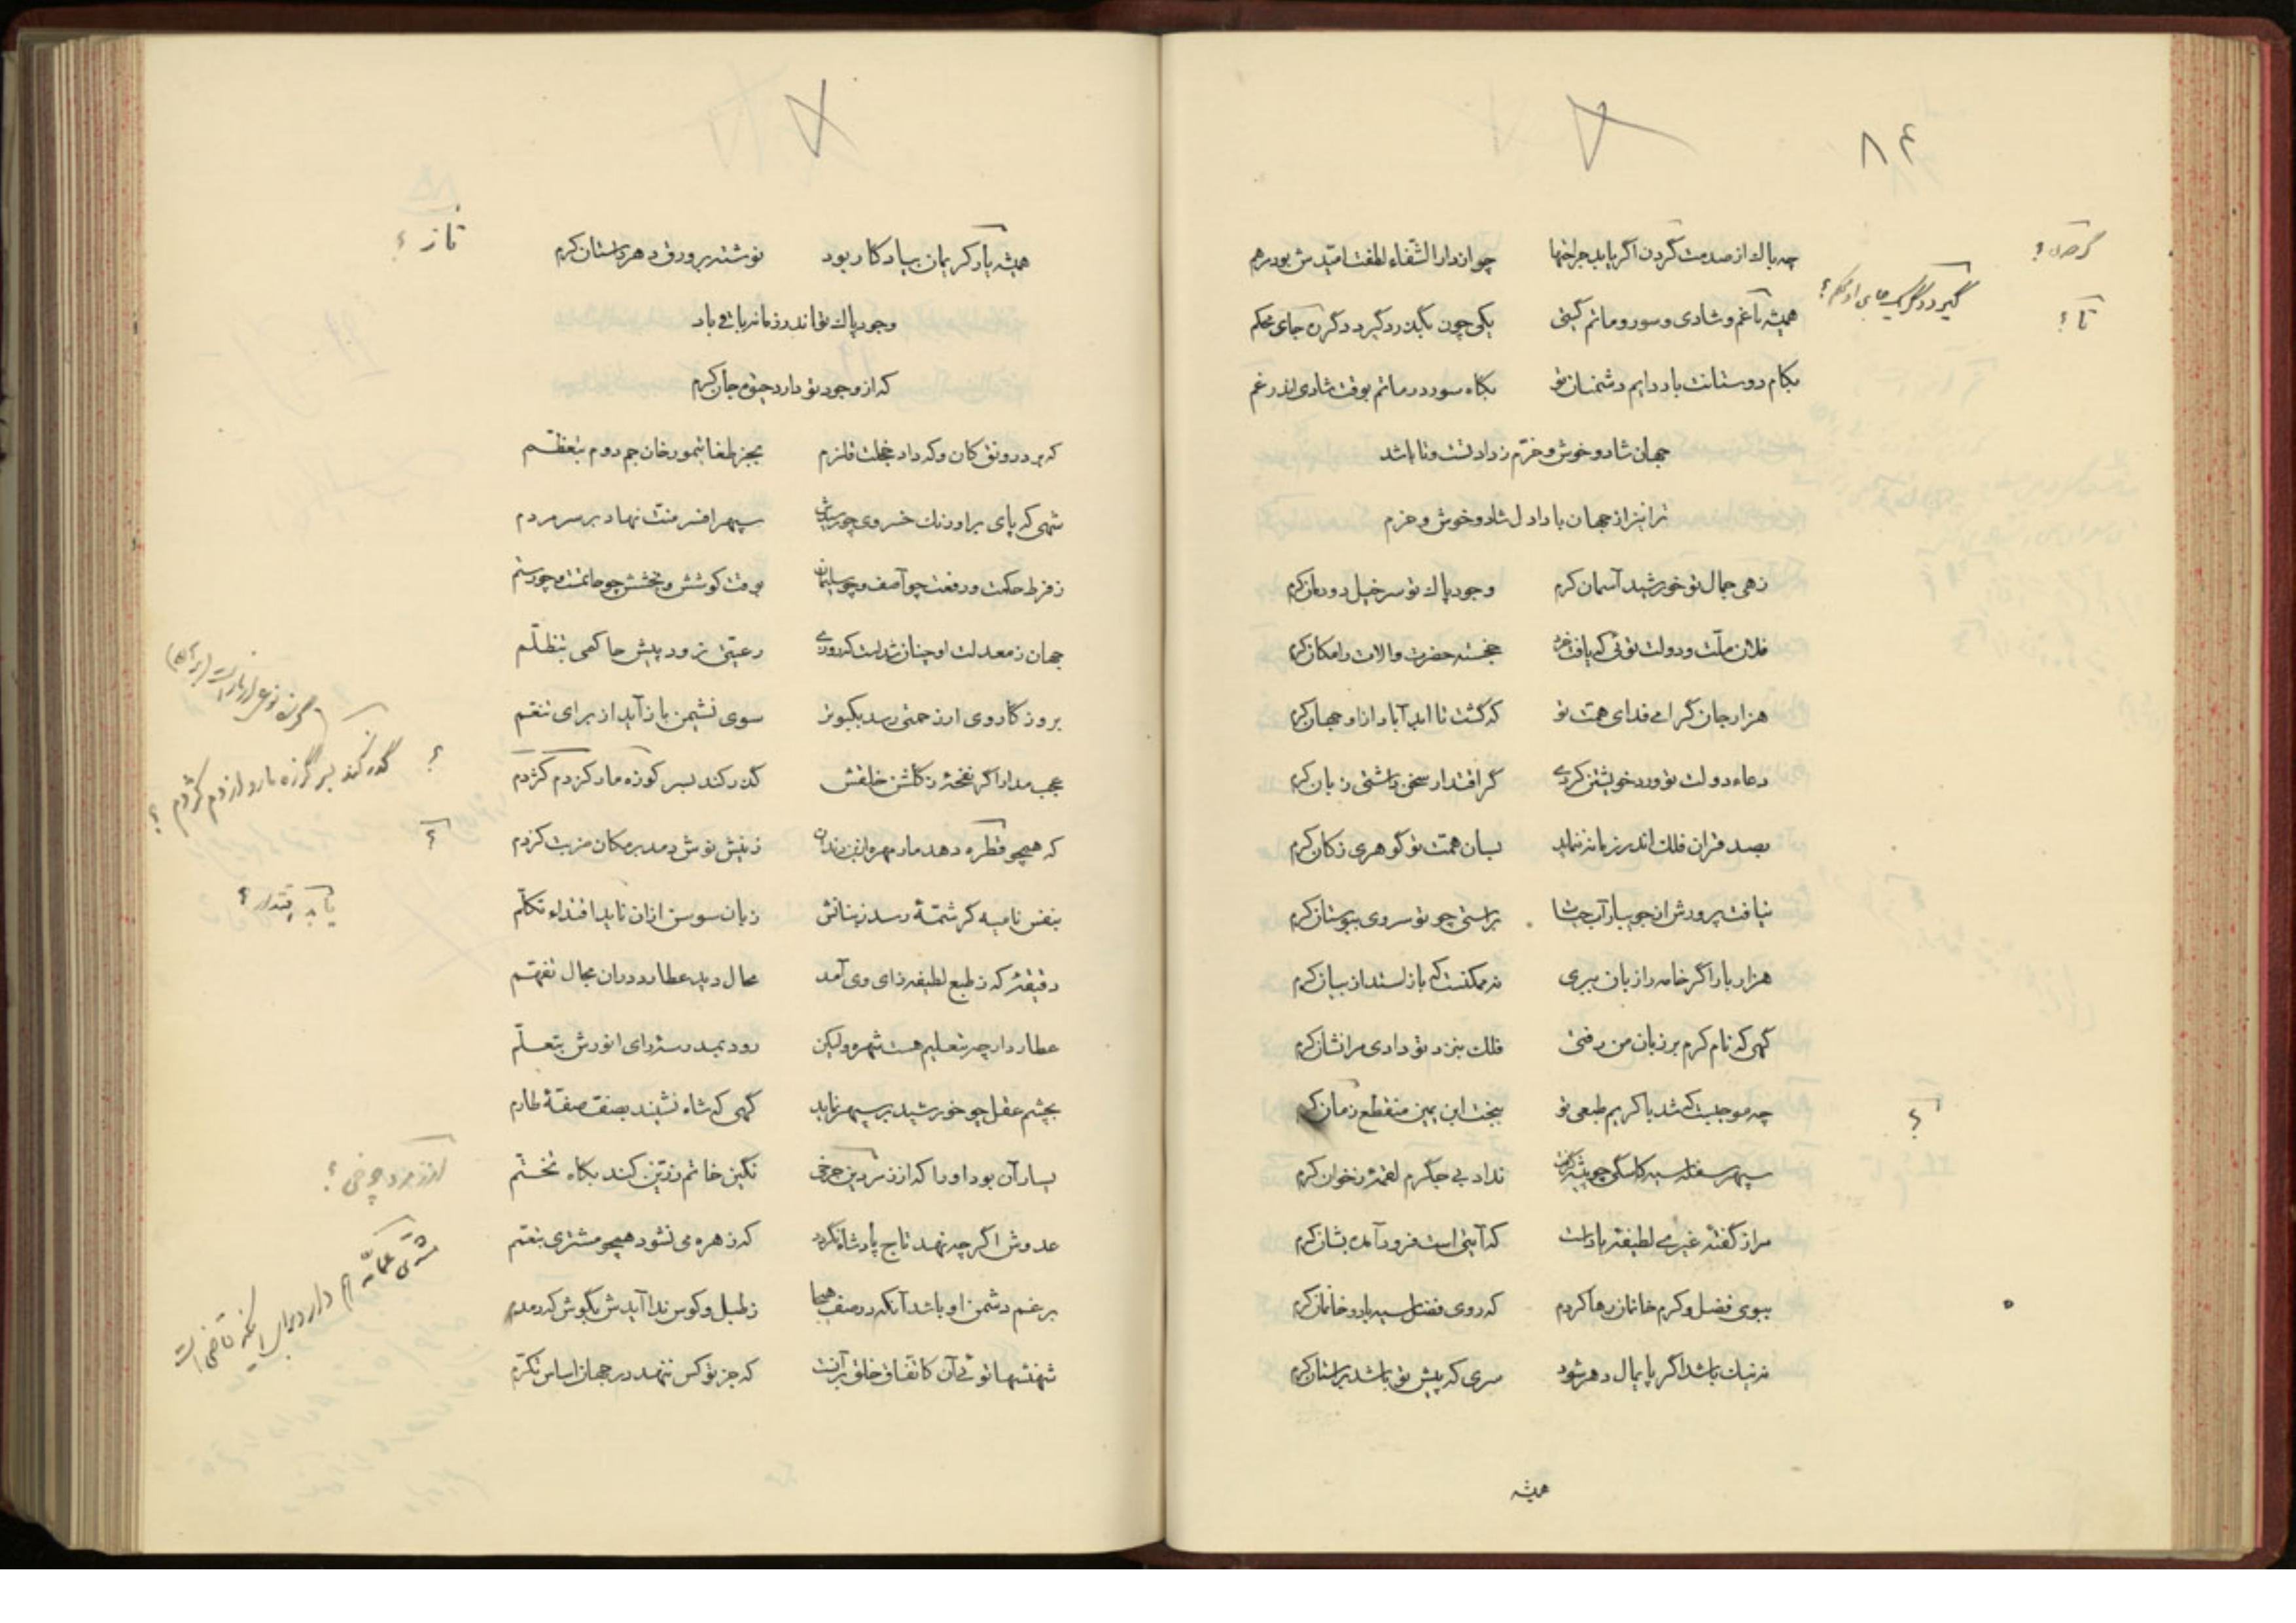 ۸۴
چه باک از صدمت گردون اگر یابد جراحتها چو از دارالشفاء لطفت امیدش بود مرهم
همیشه تا غم و شادی و سور و ماتم گیتی یکی چون بگذرد گیرد دگر ره جای محکم
بکام دوستانت باد دایم دشمنان تو بگاه سور در ماتم بوقت شادی اندر غم
جهان شاد و خوش و خرّم ز دادتست و تا باشد
ترا نیز از جهان بادا دل شاد و خوش و خرم
زهی جمال تو خورشید آسمان کرم وجود پاک تو سرخیل دودمان کرم
فلان ملّت و دولت توئی که یافت خرد خجسته حضرت والات را مکان کرم
هزار جان گرامی فدای همت تو که گشت تا ابد آباد ازو جهان کرم
دعاء دولت تو ورد خویشتن کردی گر اقتدار سخن داشتی زبان کرم
بصد قران فلک اندر زمانه ننماید بسان همت تو گوهری ز کان کرم
نیافت پرورش از جویبار آب حیات براستی چو تو سروی ببوستان کرم
هزار بار اگر خامه را زبان ببری نه ممکنست که باز استد از بیان کرم
گهی که نام کرم بر زبان من رفتی فلک بنزد تو دادی مرا نشان کرم
چه موجبست که شد با کریم طبعی تو ببخت ابن یمین منقطع زمان کرم
سپهر سفله سیه کاسگی چو پیشه گرفت نداد بی جگرم لقمهٔ ز خوان کرم
مرا ز گفته غیری لطیفه یادست که آیتی است فرود آمده بشان کرم
ببوی فضل و کرم خانمان رها کردم که روی فضل سیه باد و خانمان کرم
نه نیک باشد اگر پایمال دهر شود سری که پیش تو باشد بر استان کرم
همیشه
گردون ؟
تا ؟
؟
همیشه یاد کریمان بیادگار بود نوشته بر ورق دهر داستان کرم
وجود پاک تو اندر زمانه باقی باد
که از وجود تو دارد حیوة جان کرم
که برد رونق کان و که داد خجلت قلزم بجز طغا تیمور خان جم دوم بتعظّم
شهی که پای بر اورنک خسروی چو رساند سپهر افسر منت نهاد بر سر مردم
ز فرط حکمت و رفعت چو آصف و چو سلیمان بوقت کوشش و بخشش چو حاتمست و چو رستم
جهان ز معدلت او چنان شدست که روزی رعیتی نرود پیش حاکمی بتظلّم
بروزگار وی ار زحمتی رسد بکبوتر سوی نشیمن باز آید از برای تنعّم
عجب مدار اگر نفحهٔ ز گلشن خلقش گذر کند بسر کوزه مار کزدم کژدم
که همچو قطره دهد مار مهره از بن دندان ز نیش نوش دمد بر مکان ضربت کزدم
بنفس نامیه گر شمّهٔ رسد ز بنانش زبان سوسن ازان تابد اقتداء تکلّم
دقیقهٔ که ز طبع لطیفه زای وی آمد محال دید عطارد دران مجال تفهّم
عطارد ارچه بتعلیم هست شهره ولیکن رود بمدرسهٔ رای انورش بتعلّم
بچشم عقل چو خورشید بر سپهر نماید گهی که شاه نشیند بصف صفّهٔ طارم
یسار آن بود او را که از زمردین چرخی نگین خاتم زرّین کند بگاه تختّم
عدوش اگرچه نهد تاج پادشاه نگردد که زهره می نشود همچو مشتری بتعمّم
برغم دشمن او باشد آنکه در صف هیجا ز طبل و کوس ندا آیدش بگوش که دمدم
شهنشها توئی آن کاتفاق خلق بر آنست که جز تو کس ننهد در جهان اساس تکرّم
؟
؟